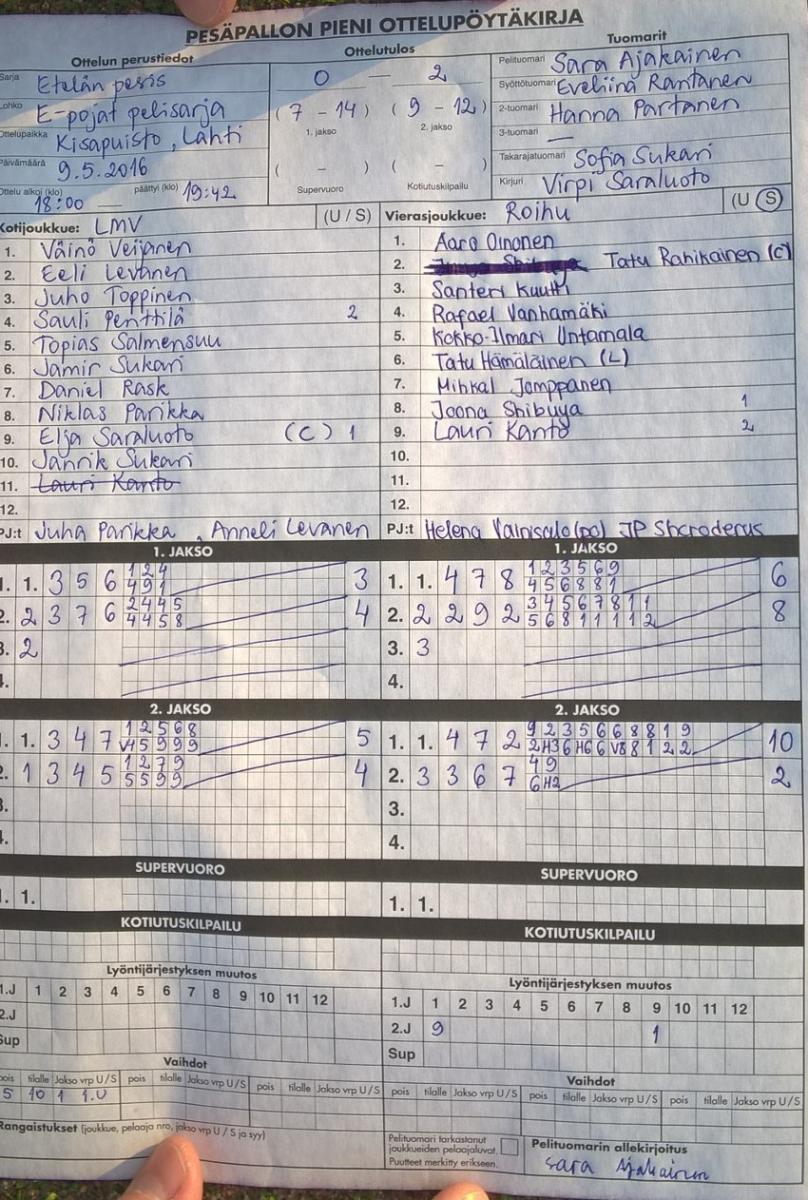 PESÄPALLON PIENI OTTELUPÖYTÄKIRJA
Ottelun perustiedot
Sarja Etelän pesis
Lohko E-pojat pelisarja
Ottelupaikka Kisapuisto, Lahti
Päivämäärä 9.5.2016
Ottelu alkoi (klo) 18:00 — päättyi (klo) 19:42
Ottelutulos
0 — 2
(7 - 14) (9 - 12)
1. jakso 2. jakso
( - ) ( - )
Supervuoro Kotiutuskilpailu
Tuomarit
Pelituomari Sara Ajakainen
Syöttötuomari Eveliina Rantanen
2-tuomari Hanna Partanen
3-tuomari —
Takarajatuomari Sofia Sukari
Kirjuri Virpi Saraluoto
Kotijoukkue: LMV (U / S)
1. Väinö Veijanen
2. Eeli Levanen
3. Juho Toppinen
4. Sauli Penttilä 2
5. Topias Salmensuu
6. Jamir Sukari
7. Daniel Rask
8. Niklas Parikka
9. Elja Saraluoto (C) 1
10. Jannik Sukari
11. Lauri Kanto
12.
PJ:t Juha Parikka, Anneli Levanen
Vierasjoukkue: Roihu (U S)
1. Aaro Oinonen
2. Tatu Rahikainen (C)
3. Santeri Kuutti
4. Rafael Vanhamäki
5. Kokko-Ilmari Untamala
6. Tatu Hämäläinen (L)
7. Mihkal Jomppanen
8. Joona Shibuya 1
9. Lauri Kanto 2
10.
11.
12.
PJ:t Helena Vainisalo (po) JP Shcroderus
1. JAKSO
1. 1. 3 5 6 1 2 4 3
4 9 1
2. 2 3 7 6 2 4 4 5 4
4 4 5 8
3. 2
4.
1. JAKSO
1. 1. 4 7 8 1 2 3 5 6 9 6
4 5 6 8 8 1
2. 2 2 9 2 3 4 5 6 7 8 1 1 8
5 6 8 1 1 1 1 2
3. 3
4.
2. JAKSO
1. 1. 3 4 7 1 2 5 6 8 5
V4 5 9 9 9
2. 1 3 4 5 1 2 7 9 4
5 5 9 9
3.
4.
2. JAKSO
1. 1. 4 7 2 9 2 3 5 6 6 8 8 1 9 10
2 H3 6 H6 6 V8 8 1 2 2
2. 3 3 6 7 4 9 2
6 H2
3.
4.
SUPERVUORO
1. 1.
SUPERVUORO
1. 1.
KOTIUTUSKILPAILU
KOTIUTUSKILPAILU
Lyöntijärjestyksen muutos
1.J 1 2 3 4 5 6 7 8 9 10 11 12
2.J
Sup
Lyöntijärjestyksen muutos
1.J 1 2 3 4 5 6 7 8 9 10 11 12
2.J 9 1
Sup
Vaihdot
pois tilalle Jakso vrp U/S pois tilalle Jakso vrp U/S pois tilalle Jakso vrp U/S
5 10 1 1.U
Vaihdot
pois tilalle Jakso vrp U/S pois tilalle Jakso vrp U/S pois tilalle Jakso vrp U/S
Rangaistukset (joukkue, pelaaja nro, jakso vrp U / S ja syy)
Pelituomari tarkastanut
joukkueiden pelaajaluvat.
Puutteet merkitty erikseen.
Pelituomarin allekirjoitus
Sara Ajakainen